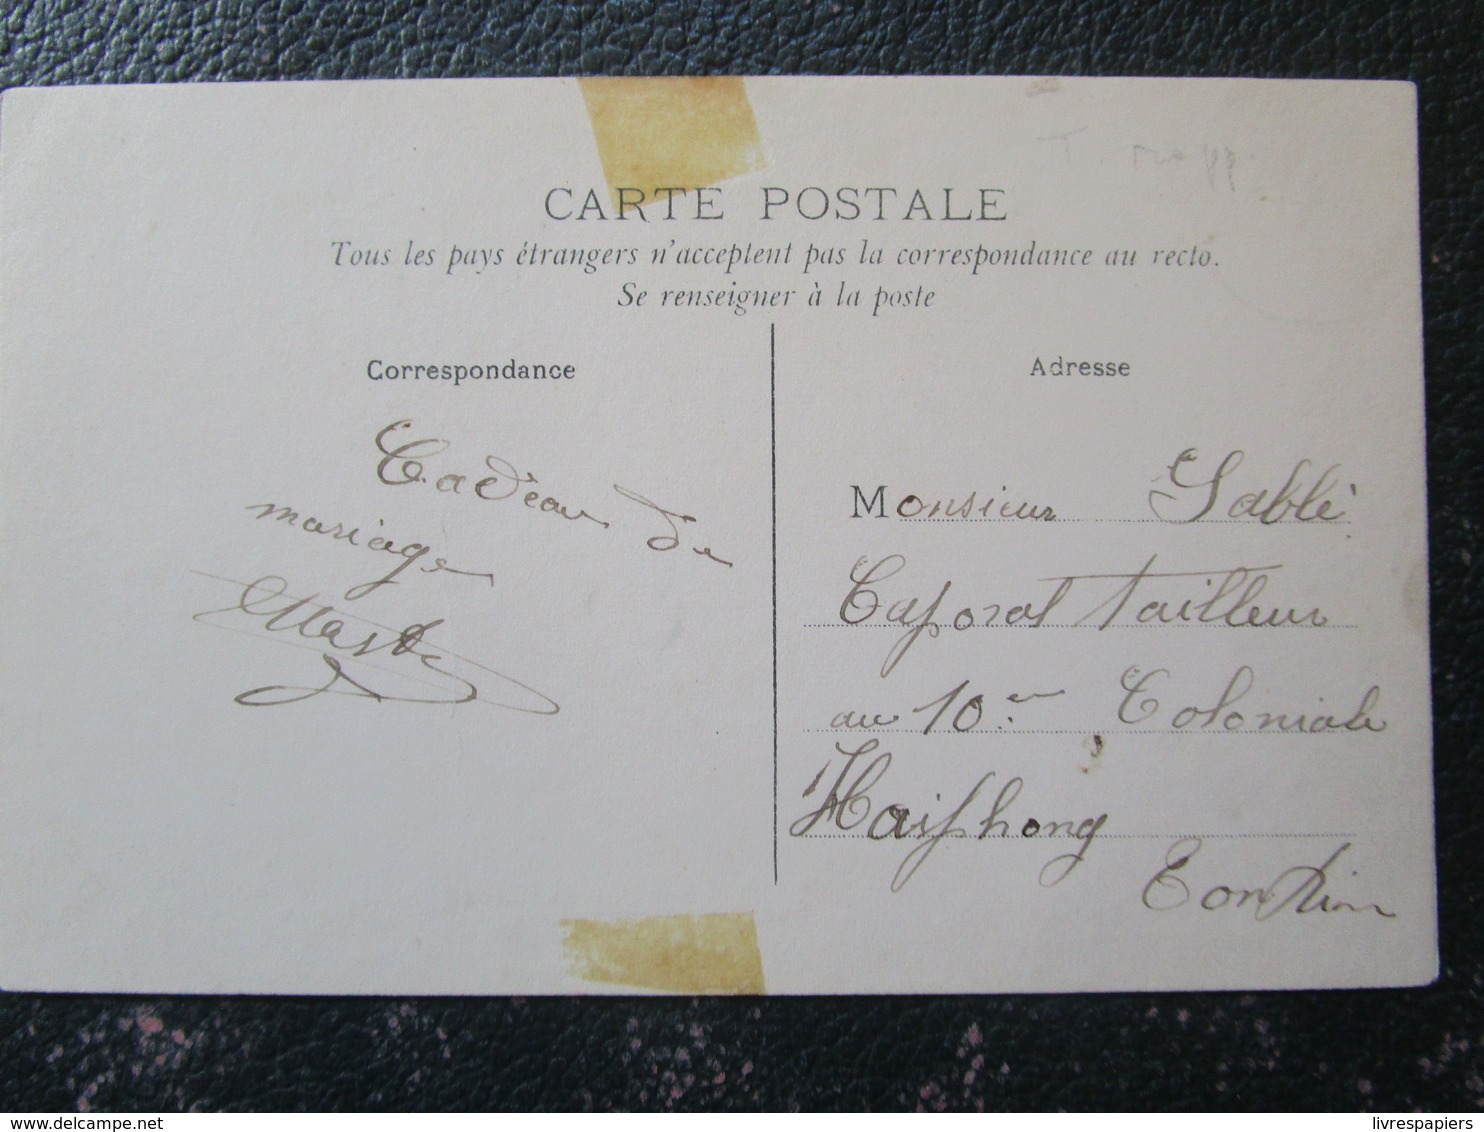 CARTE POSTALE
Tous les pays étrangers n'acceptent pas la correspondance au recto.
Se renseigner à la poste
Correspondance
Adresse
Cadeau de
mariage
Monsieur Sablé
Caporal Tailleur
au 10ᵉ Coloniale
Haiphong
Tonkin
livrespapiers